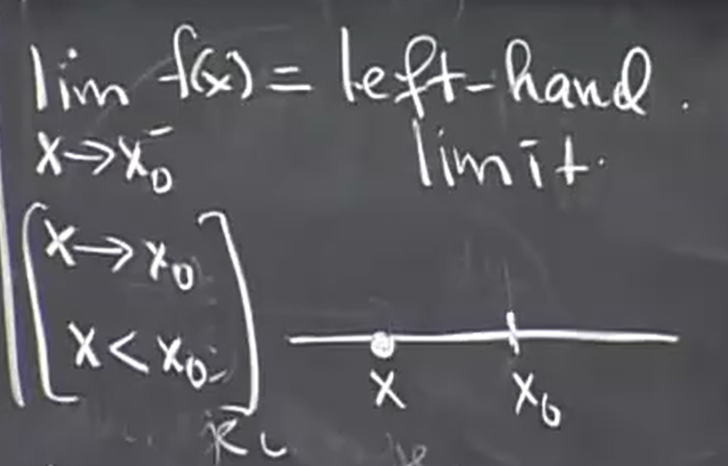 lim f(x) = left-hand.
x→x₀⁻ limit.
x→x₀
x<x₀
x x₀